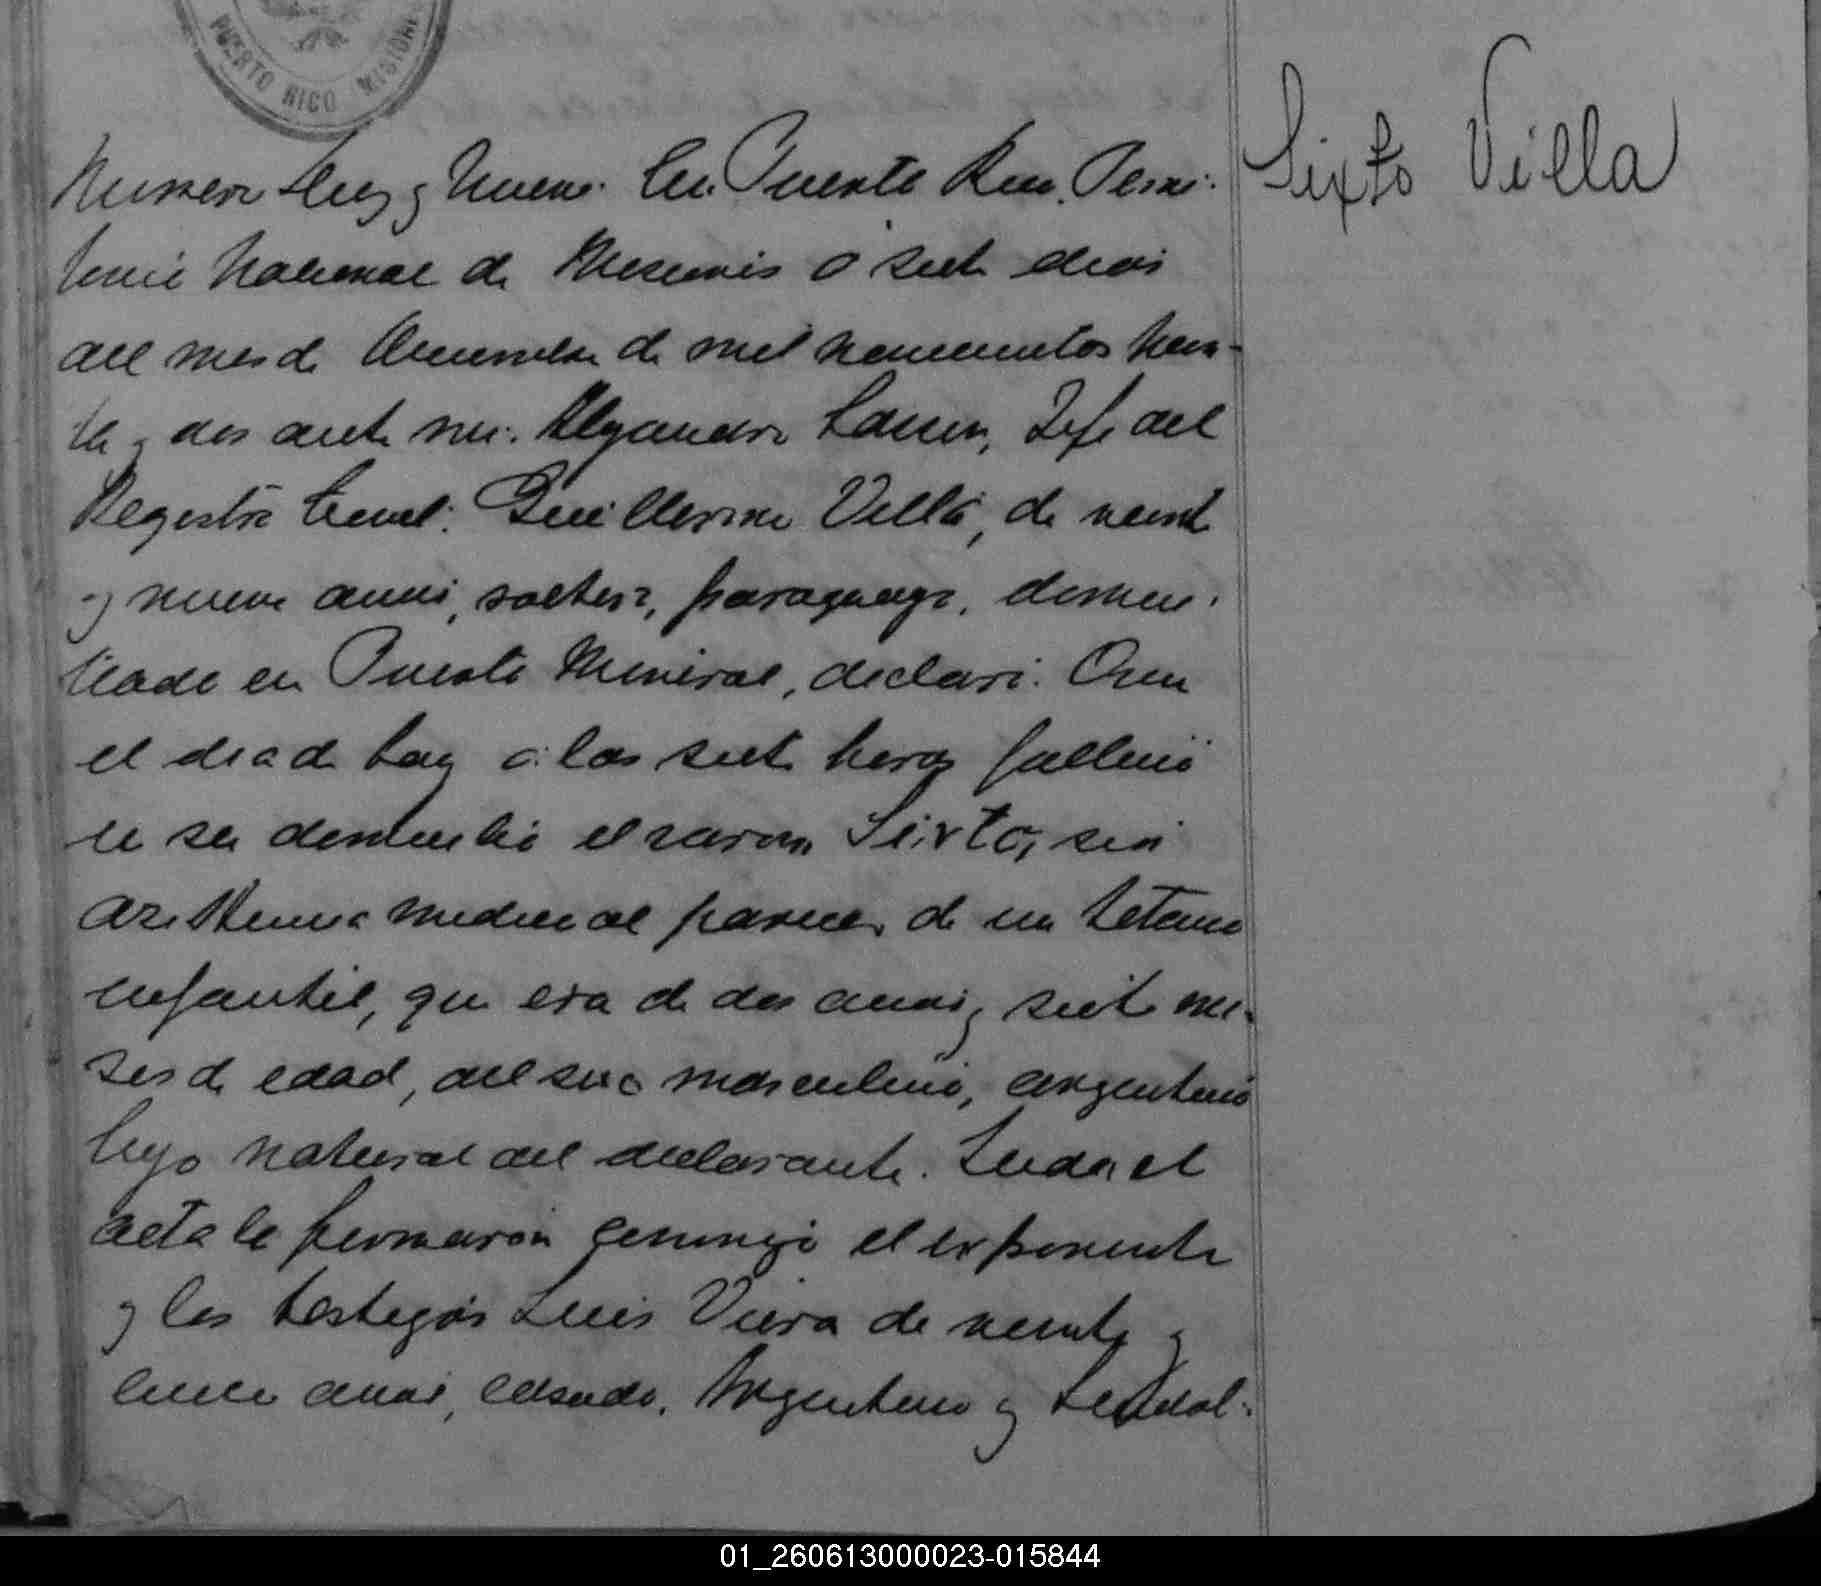 PUERTO RICO MISIONES
Sixto Villa
Numero diez y nueve. En Puerto Rico, Terri-
torio Nacional de Misiones a siete dias
del mes de de mil novecientos trein-
ta y dos ante mi. Alejandro Jefe del
Registro Civil. Guillermo Villa, de veinte
y nueve años, soltero, paraguayo, domici-
liado en Puerto Mineral, declaró: Que en
el dia de hoy a las siete horas falleció
en su domicilio el varon Sixto, sin
asistencia medica al parecer de un tetano
infantil, que era de dos años y siete me-
ses de edad, del sexo masculino, argentino
hijo natural del declarante. Leida el
acta la firmaron conmigo el exponente
y los testigos Luis Viera de veinte y
cinco años, casado, Argentino y
01_260613000023-015844